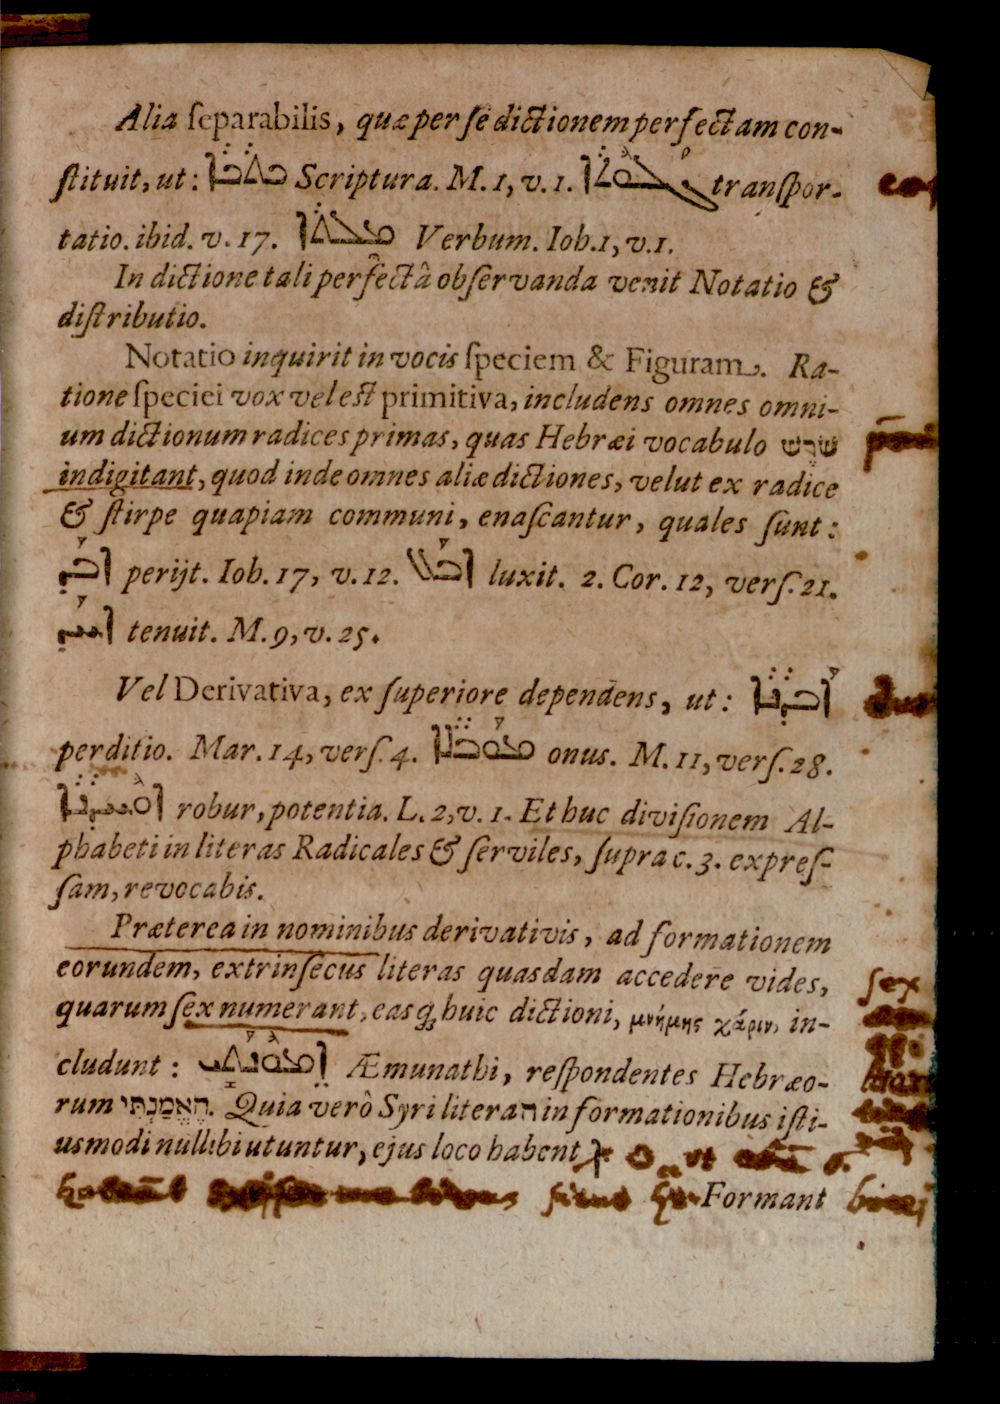 Alia ſeparabilis, quæ per ſe dictionem perfectam con-
ſtituit, ut: ܟܬܒܐ Scriptura. M. 1, v. 1. transpor-
tatio. ibid. v. 17. ܡܠܬܐ Verbum. Iob. 1, v. 1.
In dictione tali perfectâ obſervanda venit Notatio &
diſtributio.
Notatio inquirit in vocis ſpeciem & Figuram. Ra-
tione ſpeciei vox vel eſt primitiva, includens omnes omni-
um dictionum radices primas, quas Hebræi vocabulo שֹׁרֶשׁ
indigitant, quod inde omnes aliæ dictiones, velut ex radice
& ſtirpe quapiam communi, enaſcantur, quales ſunt:
ܐܒܕ perijt. Iob. 17, v. 12. ܐܒܠ luxit. 2. Cor. 12, verſ. 21.
ܐܚܕ tenuit. M. 9, v. 25.
Vel Derivativa, ex ſuperiore dependens, ut: ܐܒܕܢܐ
perditio. Mar. 14, verſ. 4. ܡܘܒܠܐ onus. M. 11, verſ. 28.
ܐܘܚܕܢܐ robur, potentia. L. 2, v. 1. Et huc diviſionem Al-
phabeti in literas Radicales & ſerviles, ſupra c. 3. expreſ-
ſam, revocabis.
Præterea in nominibus derivativis, ad formationem
eorundem, extrinſecus literas quasdam accedere vides,
quarum ſex numerant, easq; huic dictioni, μνήμης χάριν, in-
cludunt: ܐܡܘܢܬܝ Æmunathi, reſpondentes Hebræo-
rum הֶאֱמַנְתִּי. Quia verò Syri litera ה in formationibus iſti-
usmodi nullibi utuntur, ejus loco habent
Formant
sex